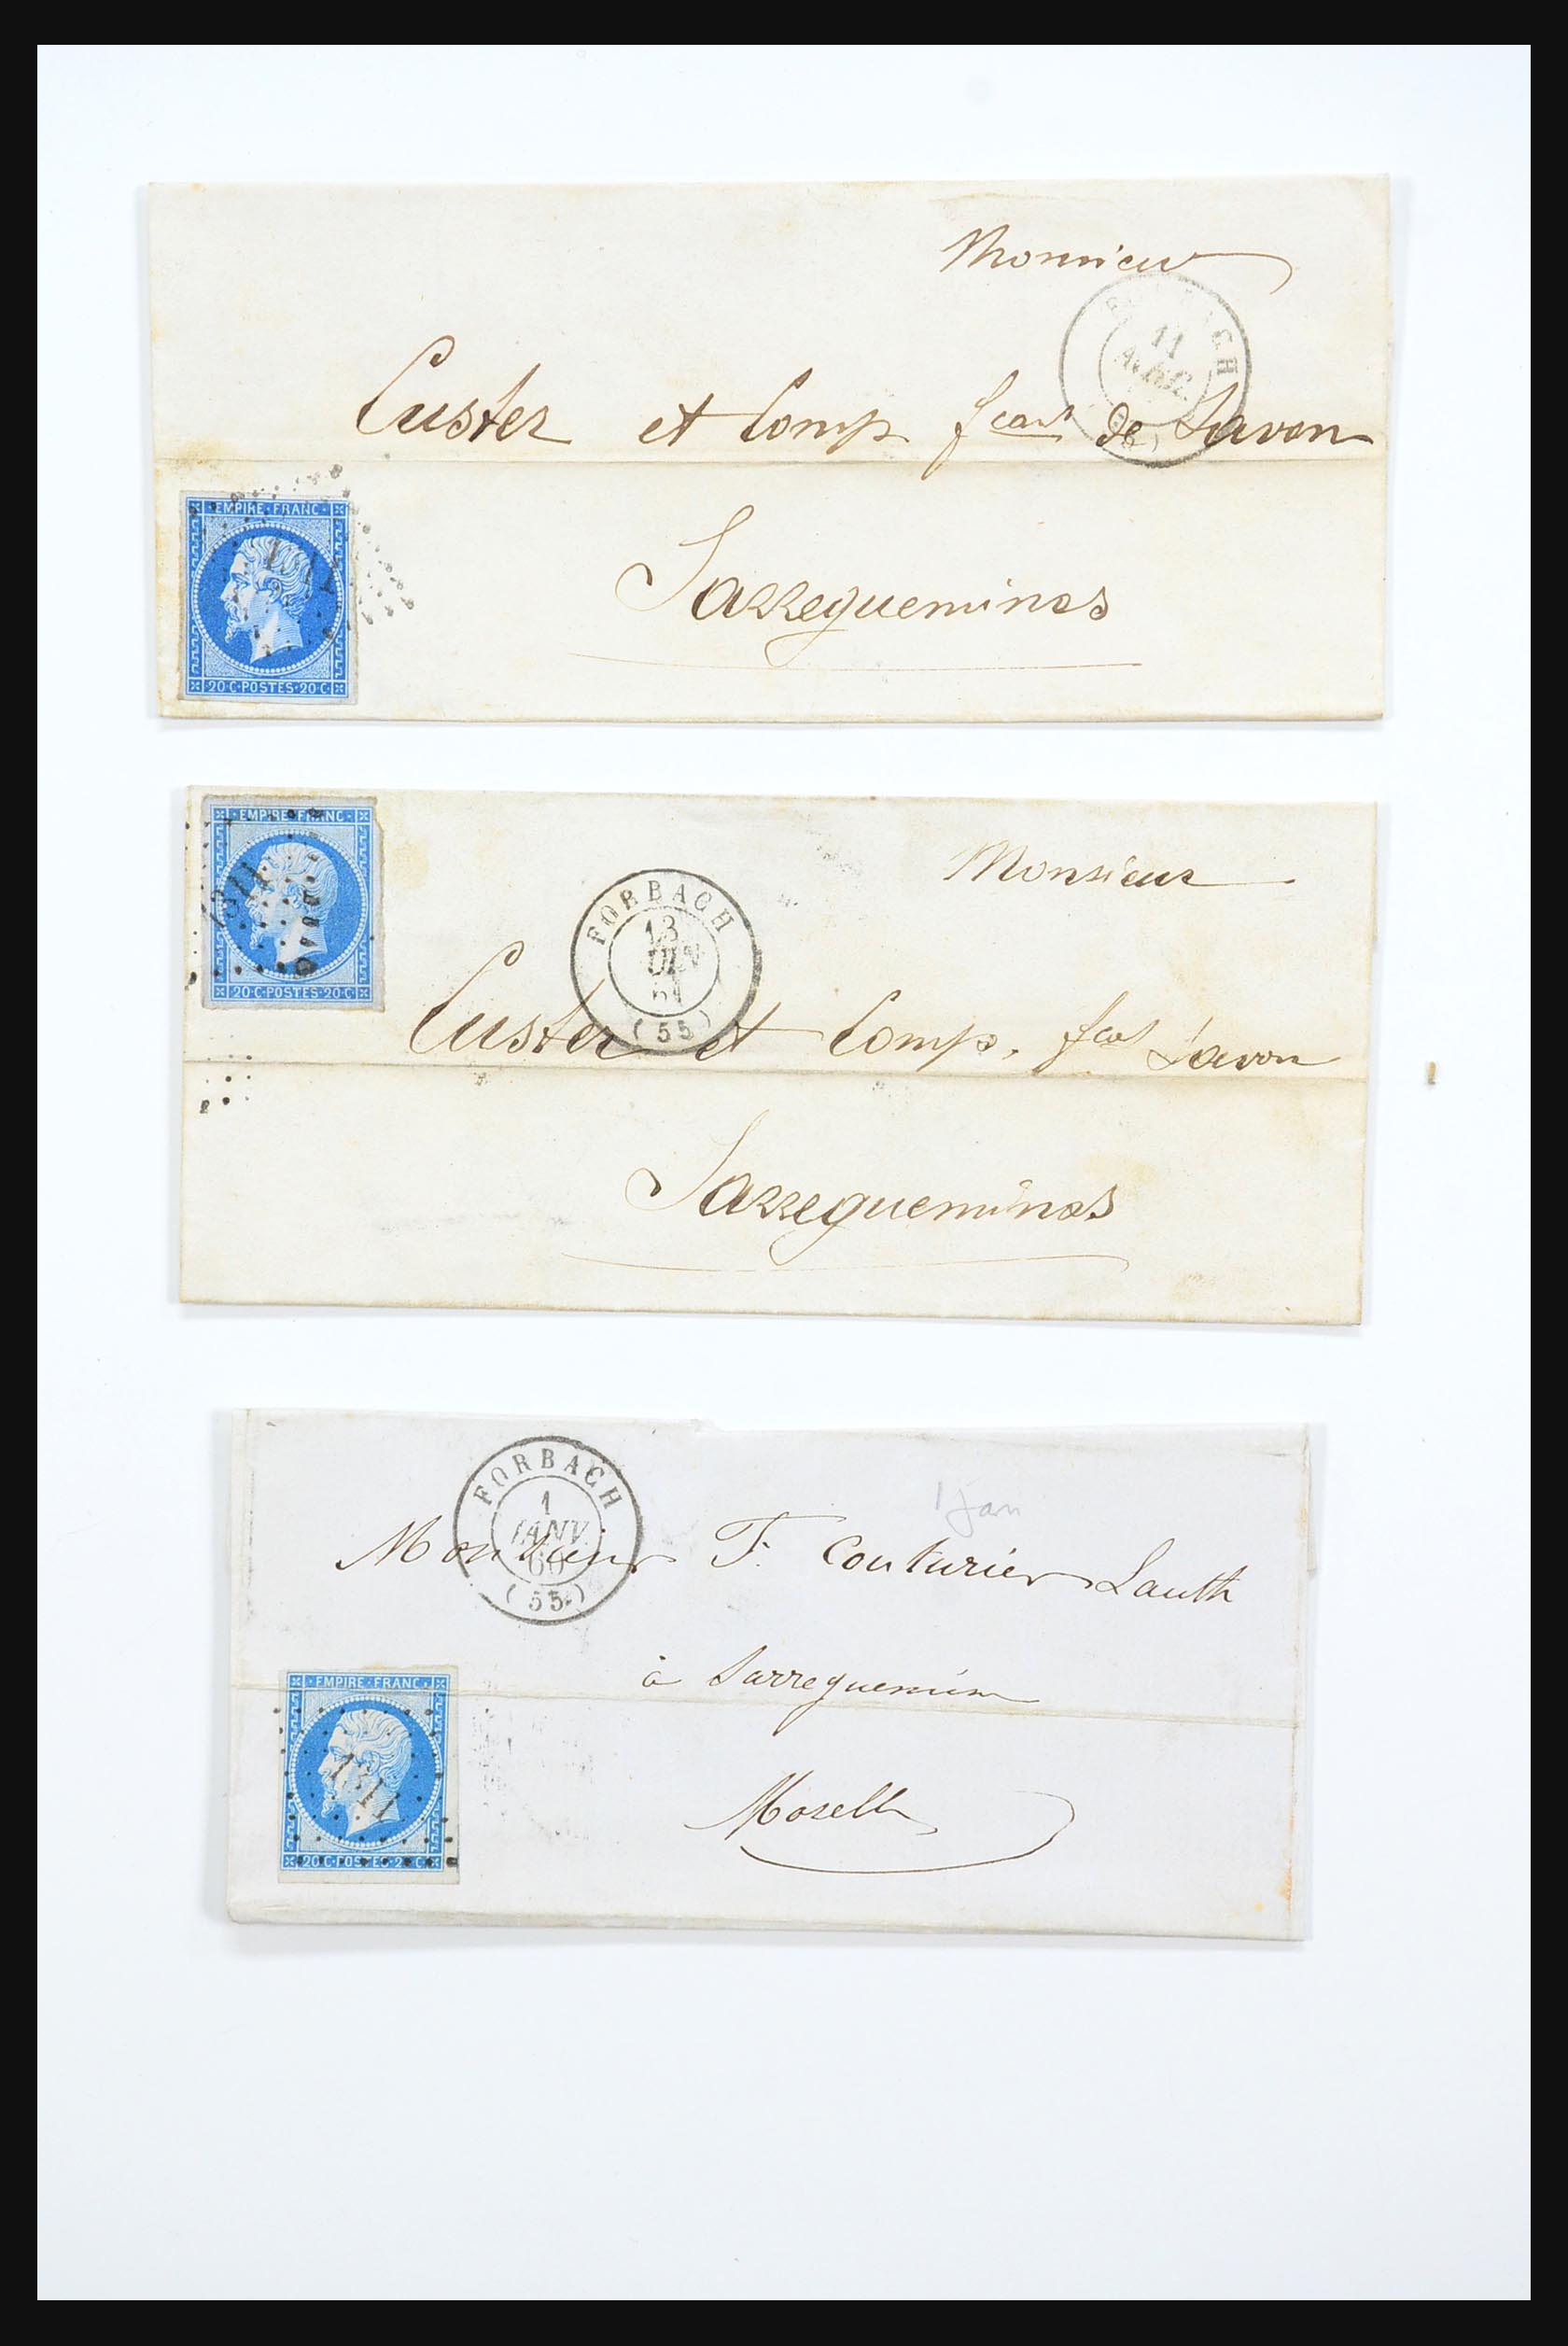 Monsieur
11
Custer et Comp fcant de Savon
EMPIRE·FRANC·
Sarreguemines
20·C·POSTES·20·C·
EMPIRE·FRANC·
1311
FORBACH
13
(55)
Monsieur
20·C·POSTES·20·C·
Custer et Comp. fcant Savon
Sarreguemines
FORBACH
1
JANV.
60
(55)
1 Jan
Monsieur F. Couturier Lauth
à Sarreguemin
EMPIRE·FRANC·
1311
20·C·POSTES·20·C·
Moselle